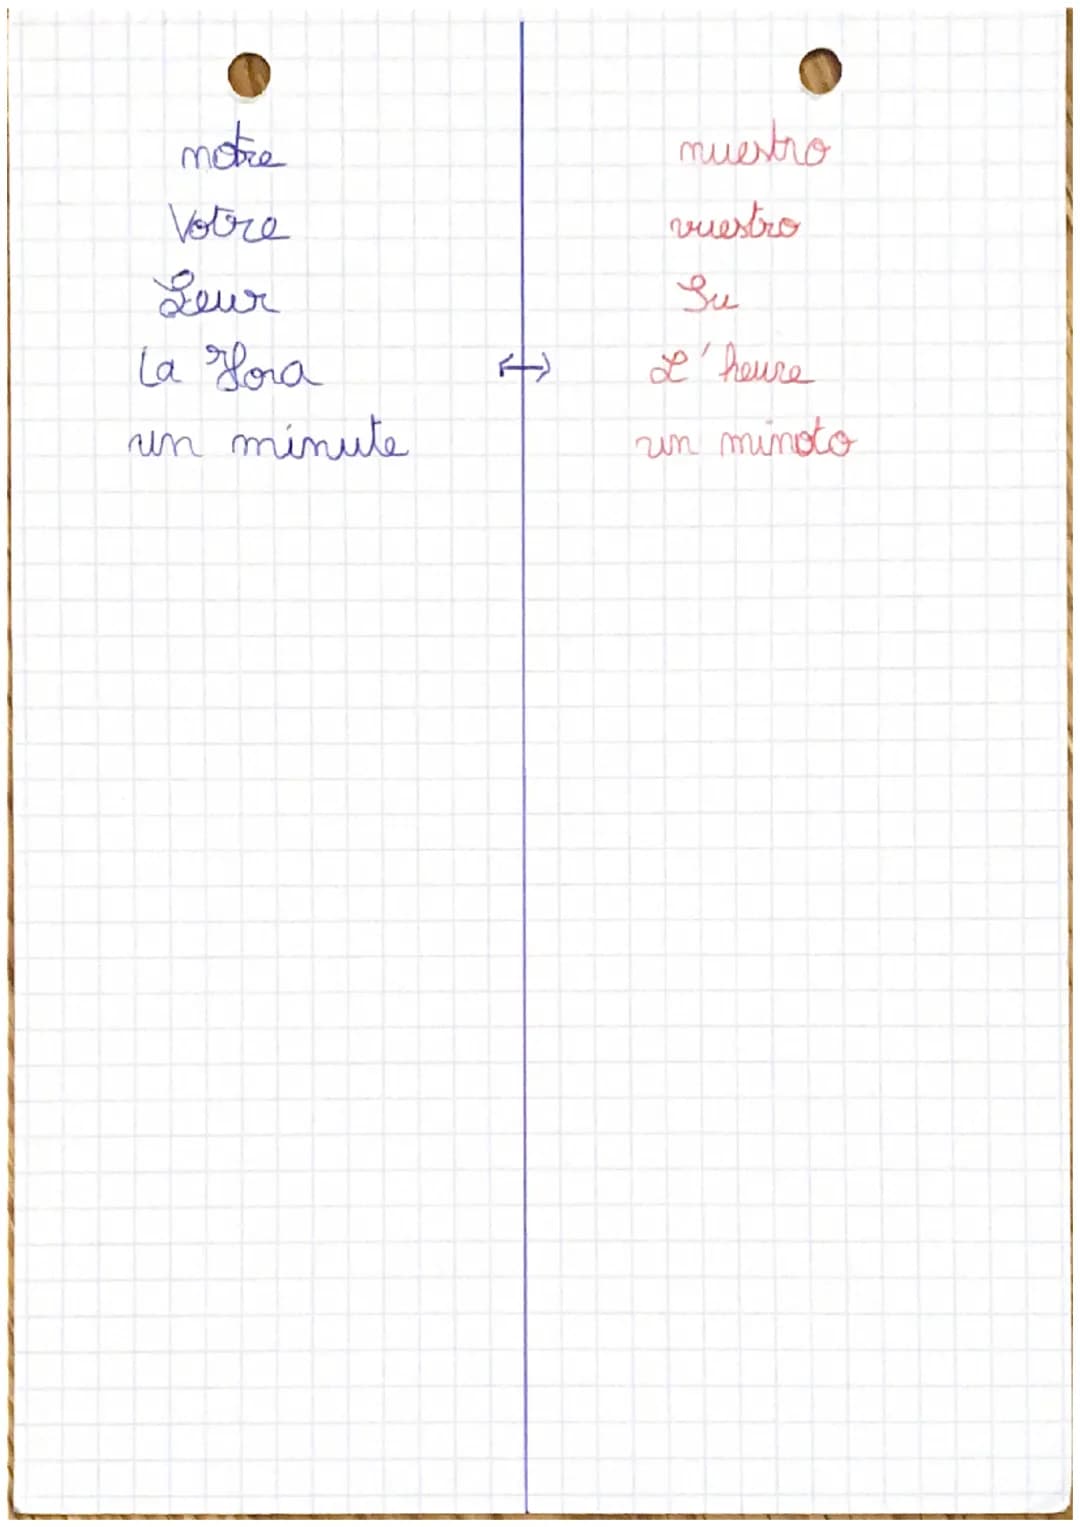 notre nuestro
Votre vuestro
Leur Su
La Hora ↔ L'heure
un minute un minoto